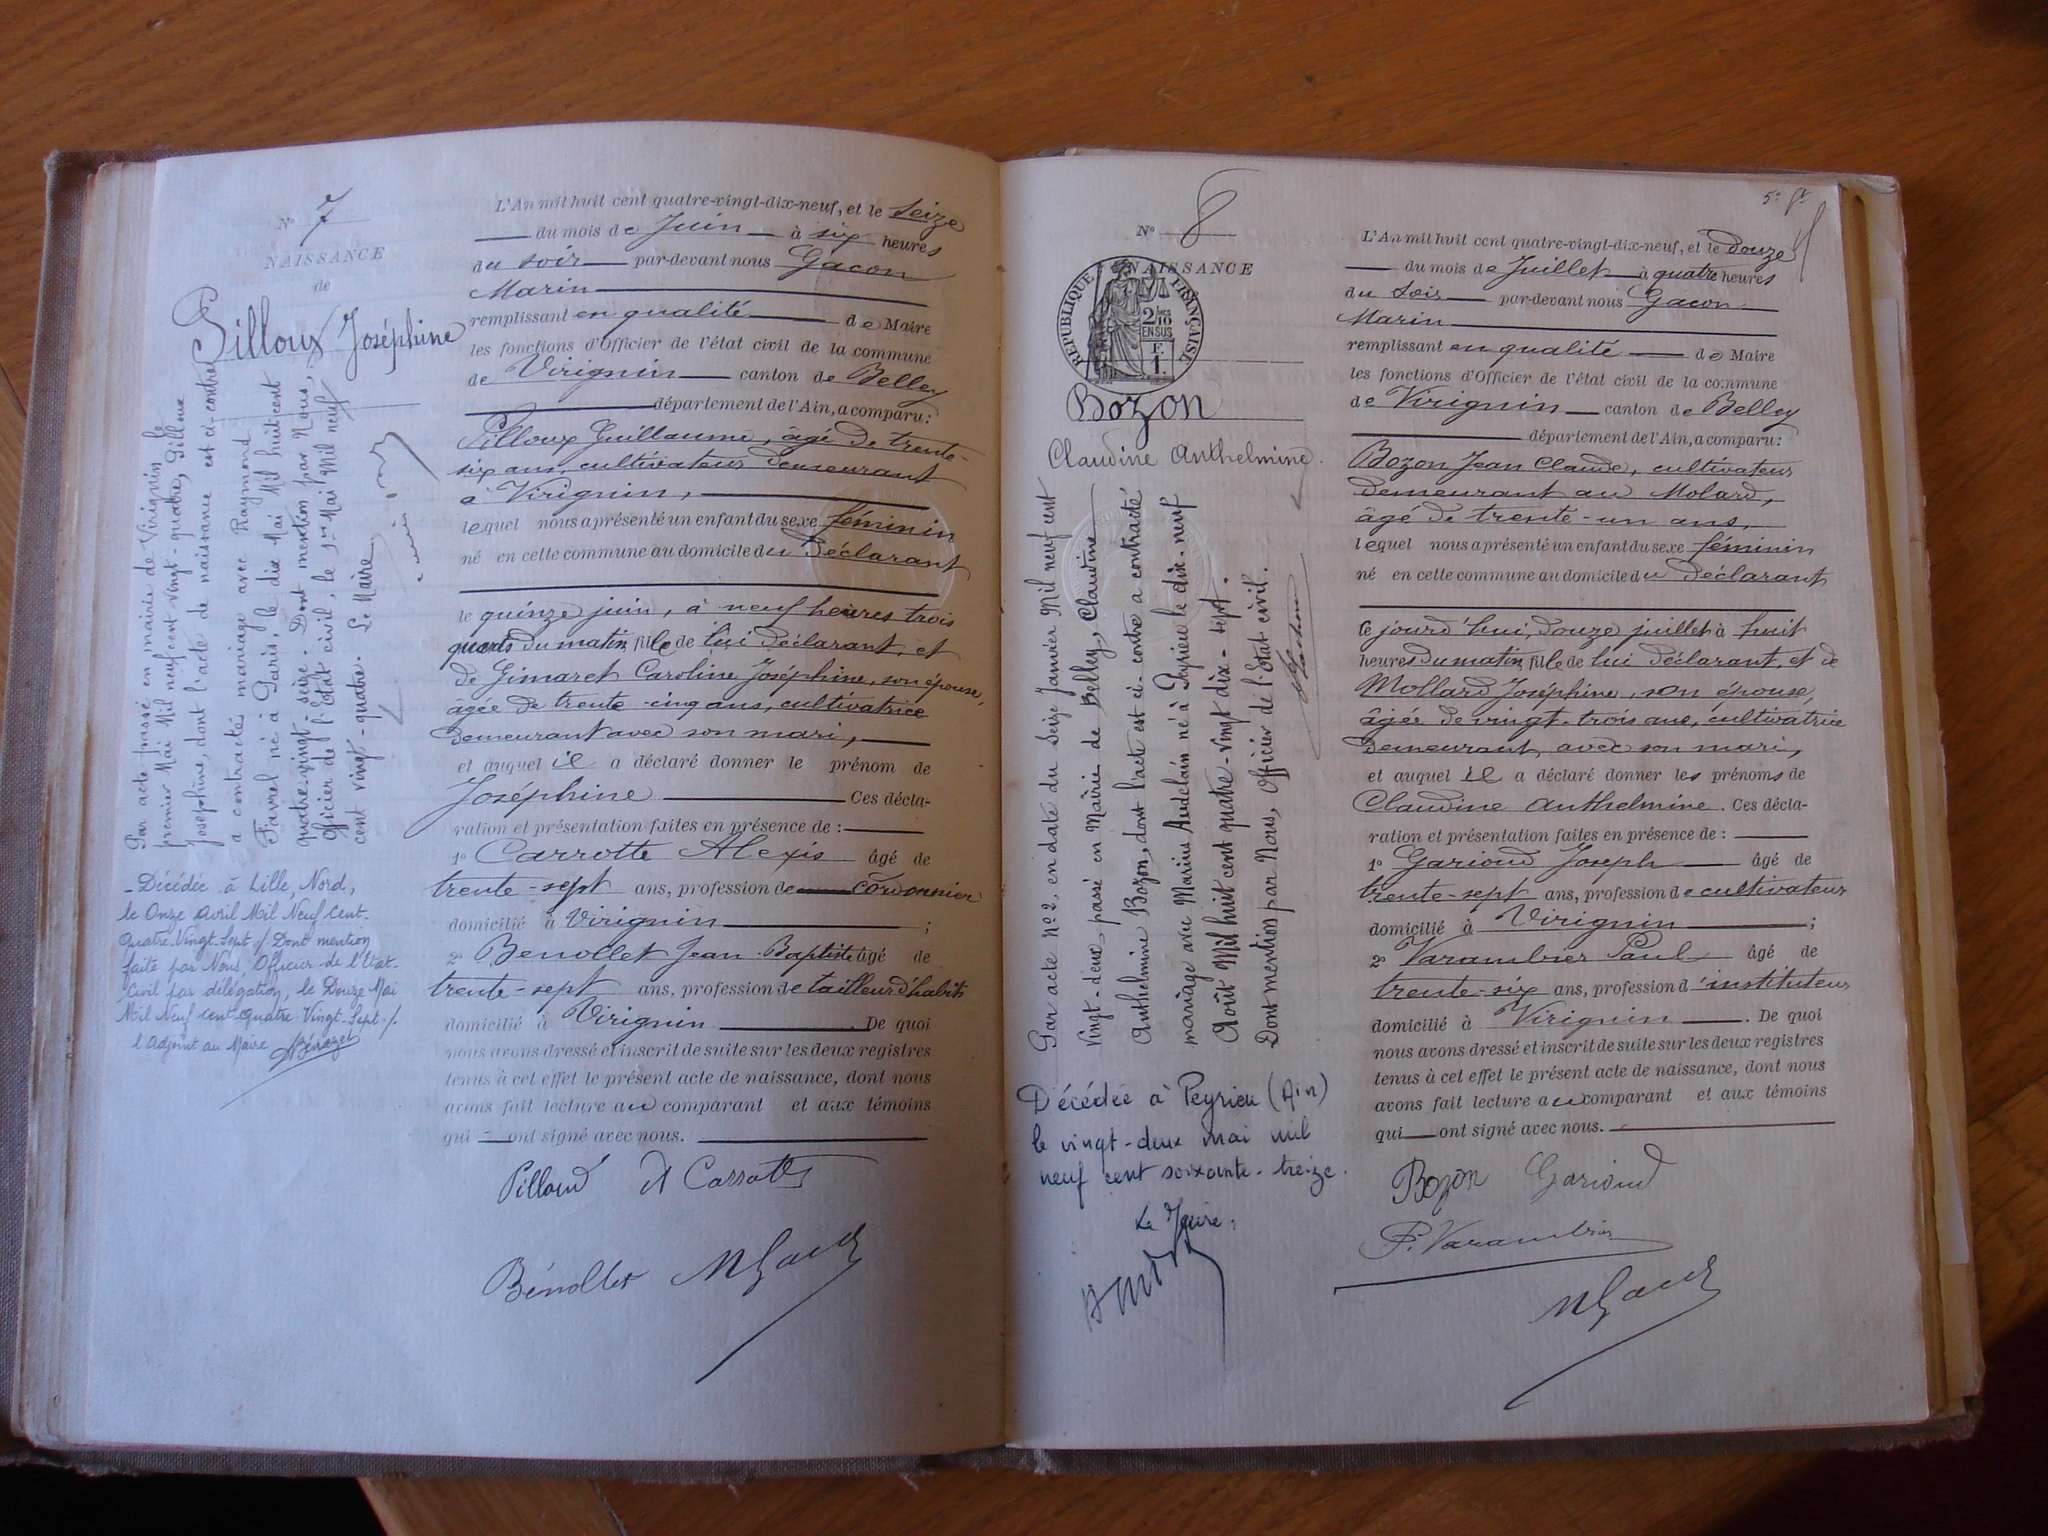 N° 7
NAISSANCE
de
Pilloux Joséphine
Par acte passé en mairie de Virignin le
premier Mai Mil neuf cent vingt-quatre, Pilloux
Joséphine, dont l'acte de naissance est ci-contre
a contracté mariage avec Raymond
Favrel né à Paris, le dix Mai Mil huit cent
quatre-vingt-seize. Dont mention par Nous,
Officier de l'Etat civil, le 1er Mai Mil neuf
cent vingt-quatre. Le Maire
- Décédée à Lille, Nord,
le Onze Avril Mil Neuf Cent-
Quatre-Vingt-Sept ./. Dont mention
faite par Nous, Officier de l'Etat
Civil par délégation, le Douze Mai
Mil Neuf cent quatre-Vingt-Sept ./.
l'Adjoint au Maire
L'An mil huit cent quatre-vingt-dix-neuf, et le seize
du mois de Juin à six heures
du soir par-devant nous Gacon
Marin
remplissant en qualité de Maire
les fonctions d'Officier de l'état civil de la commune
de Virignin canton de Belley
département de l'Ain, a comparu:
Pilloux Guillaume, âgé de trente-
six ans, cultivateur demeurant
à Virignin,
lequel nous a présenté un enfant du sexe féminin
né en cette commune au domicile du Déclarant
le quinze juin, à neuf heures trois
quarts du matin, fille de lui déclarant, et
de Gimaret Caroline Joséphine, son épouse,
agée de trente-cinq ans, cultivatrice
demeurant avec son mari,
et auquel il a déclaré donner le prénom de
Joséphine Ces décla-
ration et présentation faites en présence de :
1° Carrotte Alexis âgé de
trente-sept ans, profession de cordonnier
domicilié à Virignin ;
2° Benollet Jean-Baptiste âgé de
trente-sept ans, profession de tailleur d'habits
domicilié à Virignin. De quoi
nous avons dressé et inscrit de suite sur les deux registres
tenus à cet effet le présent acte de naissance, dont nous
avons fait lecture au comparant et aux témoins
qui ont signé avec nous.
Pilloud A Carrotte
Bénollet MGacon
5e ft
N° 8
NAISSANCE
RÉPUBLIQUE FRANÇAISE
2 10mes
EN SUS
F.
1.
Bozon
Claudine Anthelmine.
Par acte N°2, en date du Seize Janvier Mil neuf cent
vingt-deux, passé en Mairie de Belley, Claudine
Anthelmine Bozon, dont l'acte est ci-contre a contracté
mariage avec Marius Audelain né à Peyrieu le dix-neuf
Août Mil huit cent quatre-vingt dix-sept.
Dont mention par Nous, Officier de l'état civil.
Décédée à Peyrieu (Ain)
le vingt-deux mai mil
neuf cent soixante-treize.
Le Maire,
L'An mil huit cent quatre-vingt-dix-neuf, et le douze
du mois de Juillet à quatre heures
du soir par-devant nous Gacon
Marin
remplissant en qualité de Maire
les fonctions d'Officier de l'état civil de la commune
de Virignin canton de Belley
département de l'Ain, a comparu:
Bozon Jean Claude, cultivateur
demeurant au Molard,
âgé de trente-un ans,
lequel nous a présenté un enfant du sexe féminin
né en cette commune au domicile du Déclarant
ce jourd'hui, douze juillet à huit
heures du matin, fille de lui déclarant, et de
Mollard Joséphine, son épouse,
âgée de vingt-trois ans, cultivatrice
demeurant, avec son mari,
et auquel il a déclaré donner les prénoms de
Claudine Anthelmine. Ces décla-
ration et présentation faites en présence de :
1° Garioud Joseph âgé de
trente-sept ans, profession de cultivateur
domicilié à Virignin ;
2° Varambier Paul âgé de
trente-six ans, profession d'instituteur
domicilié à Virignin. De quoi
nous avons dressé et inscrit de suite sur les deux registres
tenus à cet effet le présent acte de naissance, dont nous
avons fait lecture au comparant et aux témoins
qui ont signé avec nous.
Bozon Garioud
P. Varambier
MGacon